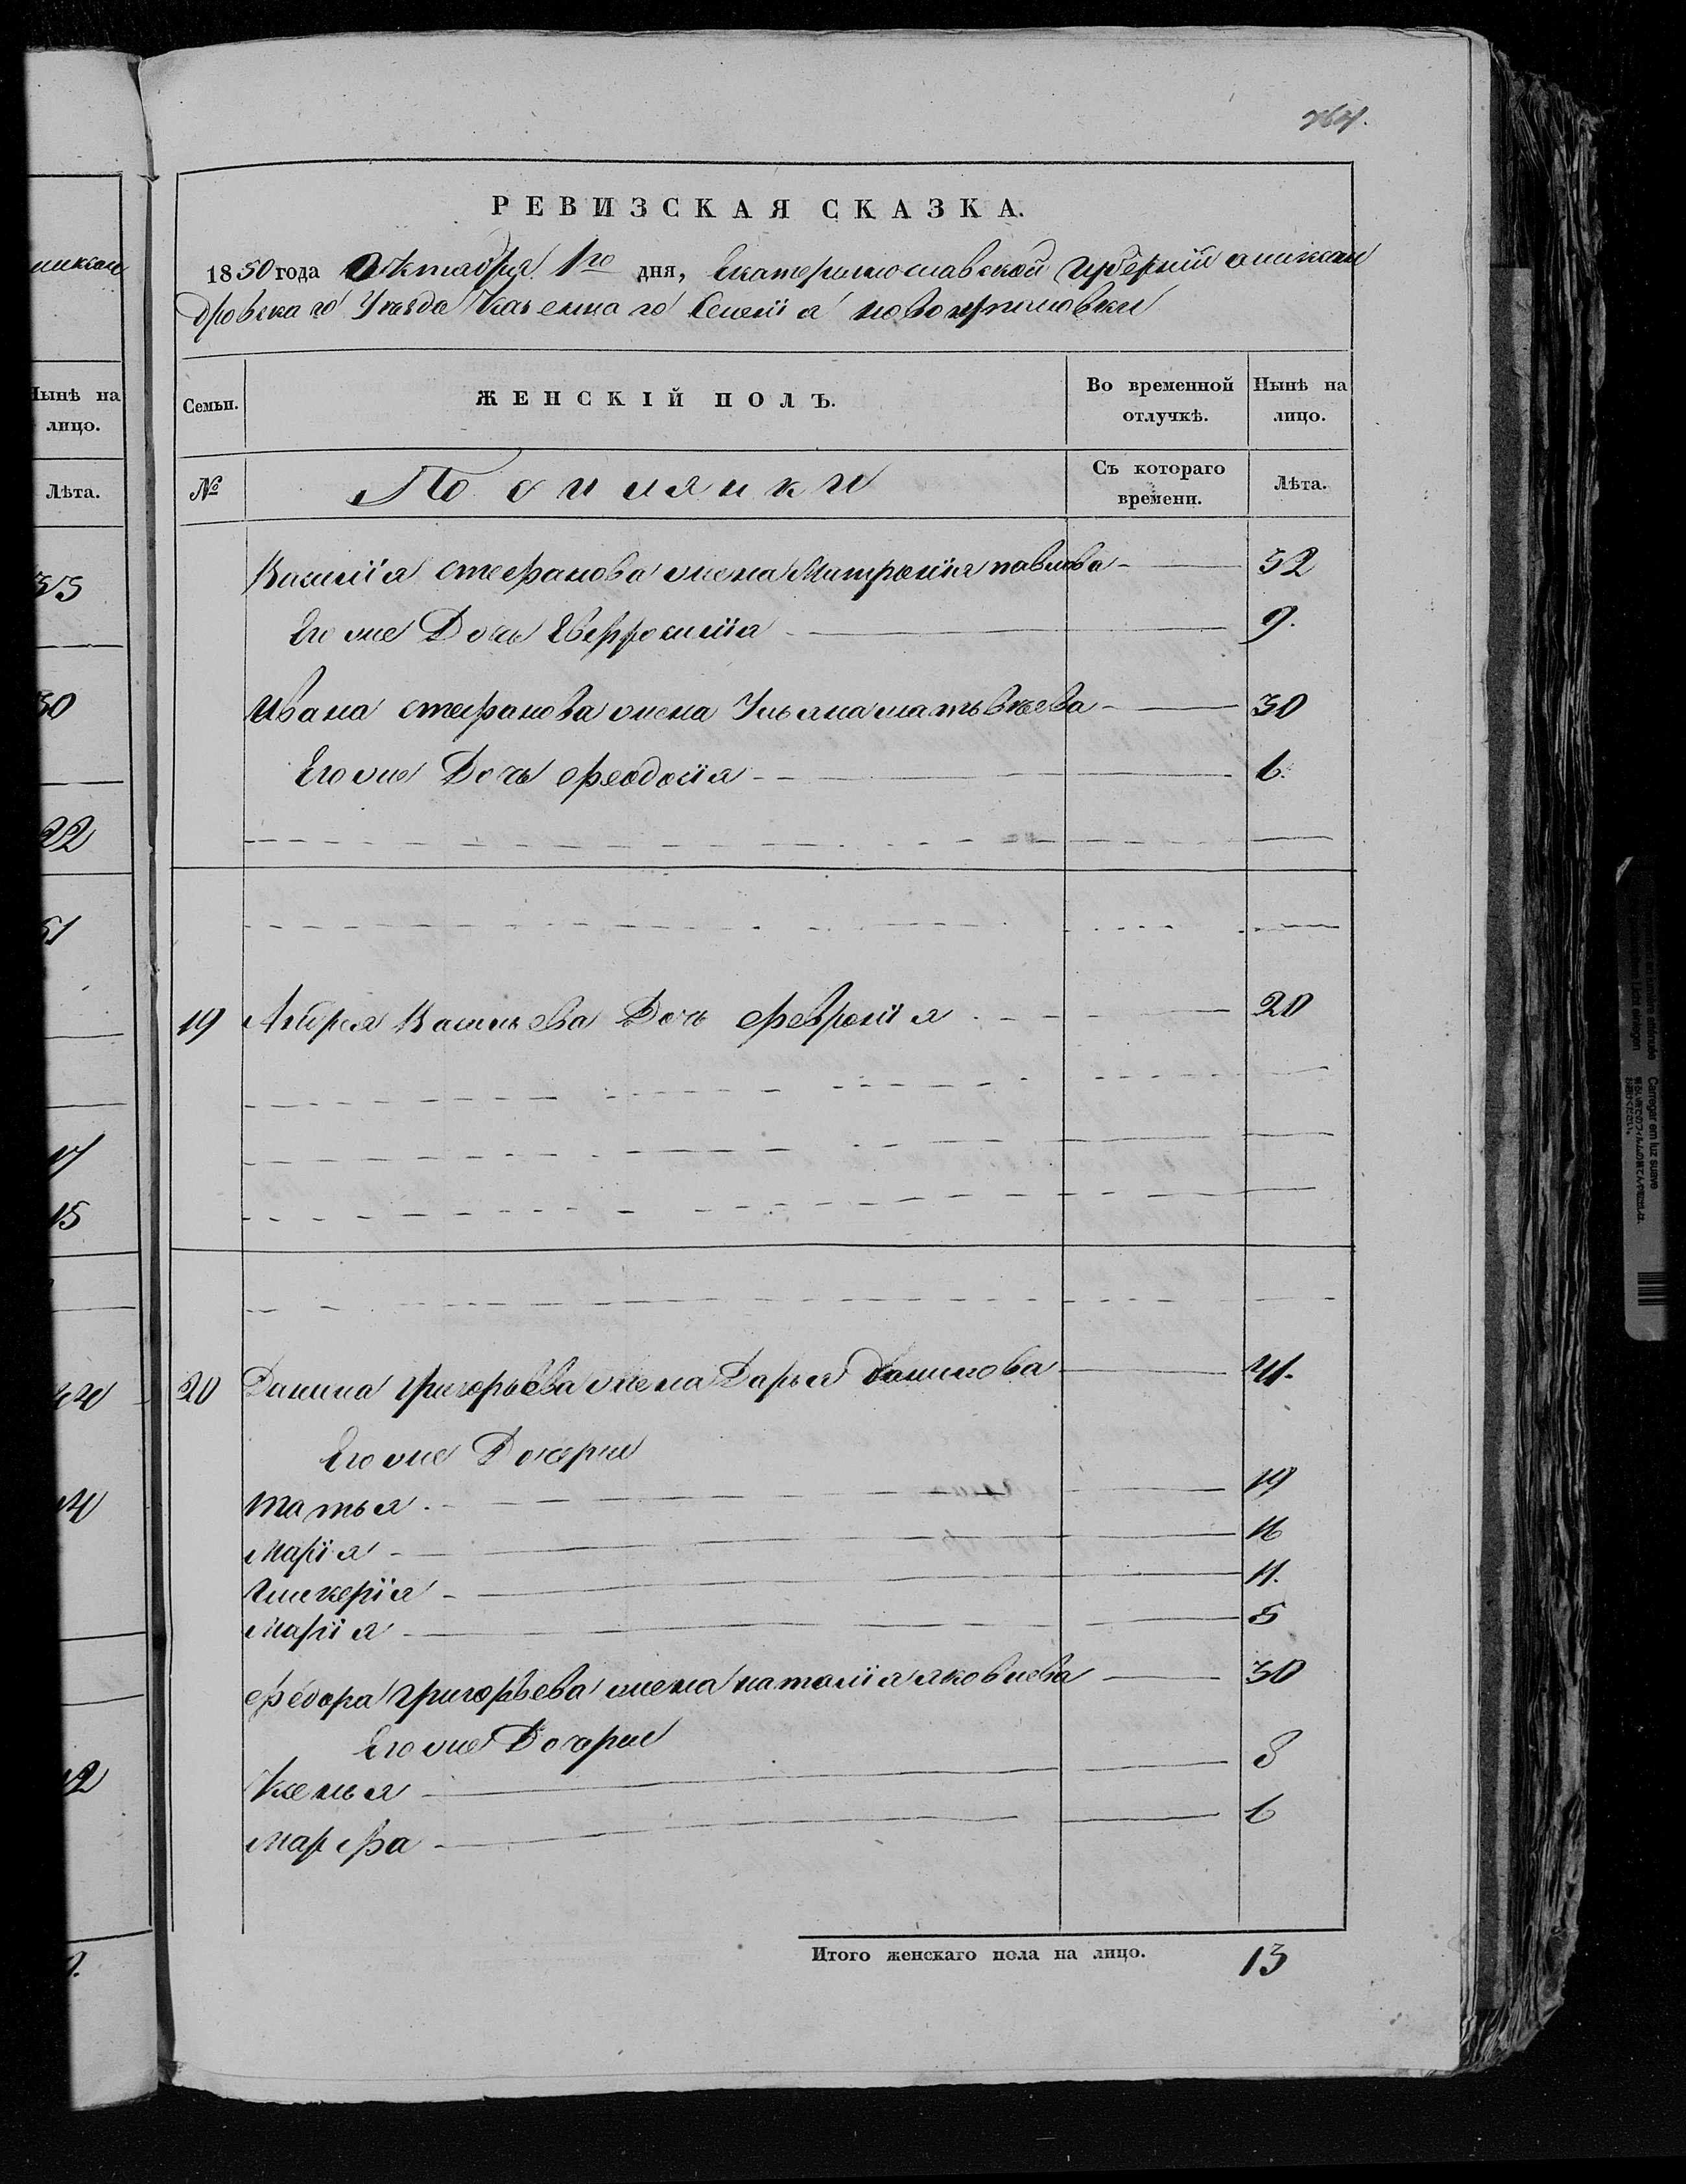 764.
РЕВИЗСКАЯ СКАЗКА.
1850 года Октября 1го дня, Екатеринославской Губерніи александровскаго Уезда Казеннаго Селенія
ЖЕНСКІЙ ПОЛЪ.
Семьи.
Во временной отлучкѣ.
Нынѣ на лицо.
№
Поселянки
Съ котораго времени.
Лѣта.
Василія стефанова жена Матронія павлова 32
Его же Дочь Евфросинія 9.
Ивана стефанова жена Ульяна матьвѣева 30
Его же Дочь феодосія 6.
19 Андрея Васильева Дочь феѵронія 20
20 Данила григорьева жена Дарья данилова 41.
Его же Дочери
татья 19
марія 16
гликерія 11.
марія 5
федора григорьева жена наталія яковлева 30
Его же Дочери
Ксенья 8
марфа 6
Итого женскаго пола на лицо. 13
Нынѣ на лицо.
Лѣта.
35
30
22
51
17
15